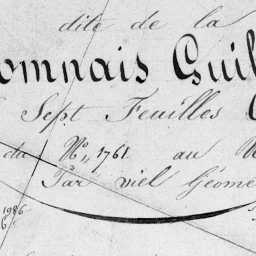 dite de la
omnais Guil
Sept Feuilles
du N°, 1761 au
Par viel Géome
1986